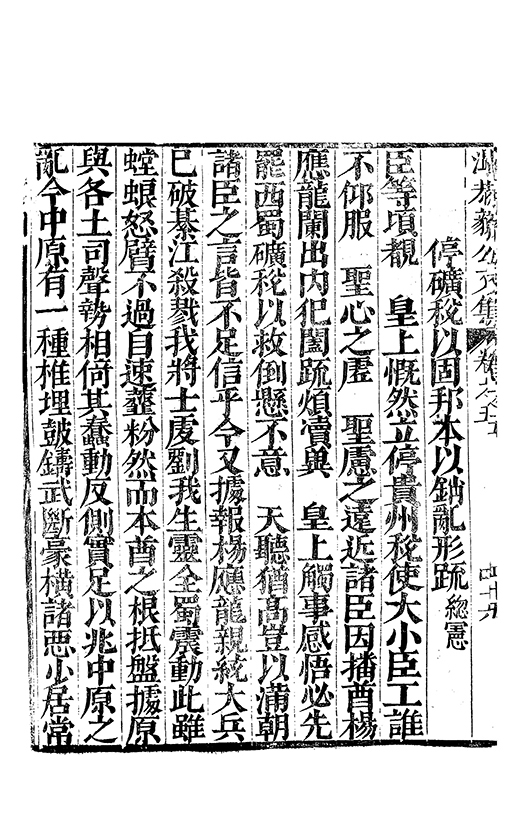 溫恭毅公文集 卷之五
停礦稅以固邦本以銷亂形疏 總憲
臣等頃覩 皇上慨然立停貴州稅使大小臣工誰
不仰服 聖心之虛 聖慮之遠近諸臣因播酋楊
應龍闌出內犯闔疏煩瀆與 皇上觸事感悟必先
罷西蜀礦稅以救倒懸不意 天聽猶高豈以滿朝
諸臣之言皆不足信乎今又據報楊應龍親統大兵
已破綦江殺戮我將士虔劉我生靈全蜀震動此雖
螳蜋怒臂不過自速虀粉然而本酋之根抵盤據原
與各土司聲勢相倚其蠢動反側實足以兆中原之
亂今中原有一種椎埋鼓鑄武斷豪橫諸惡少居常